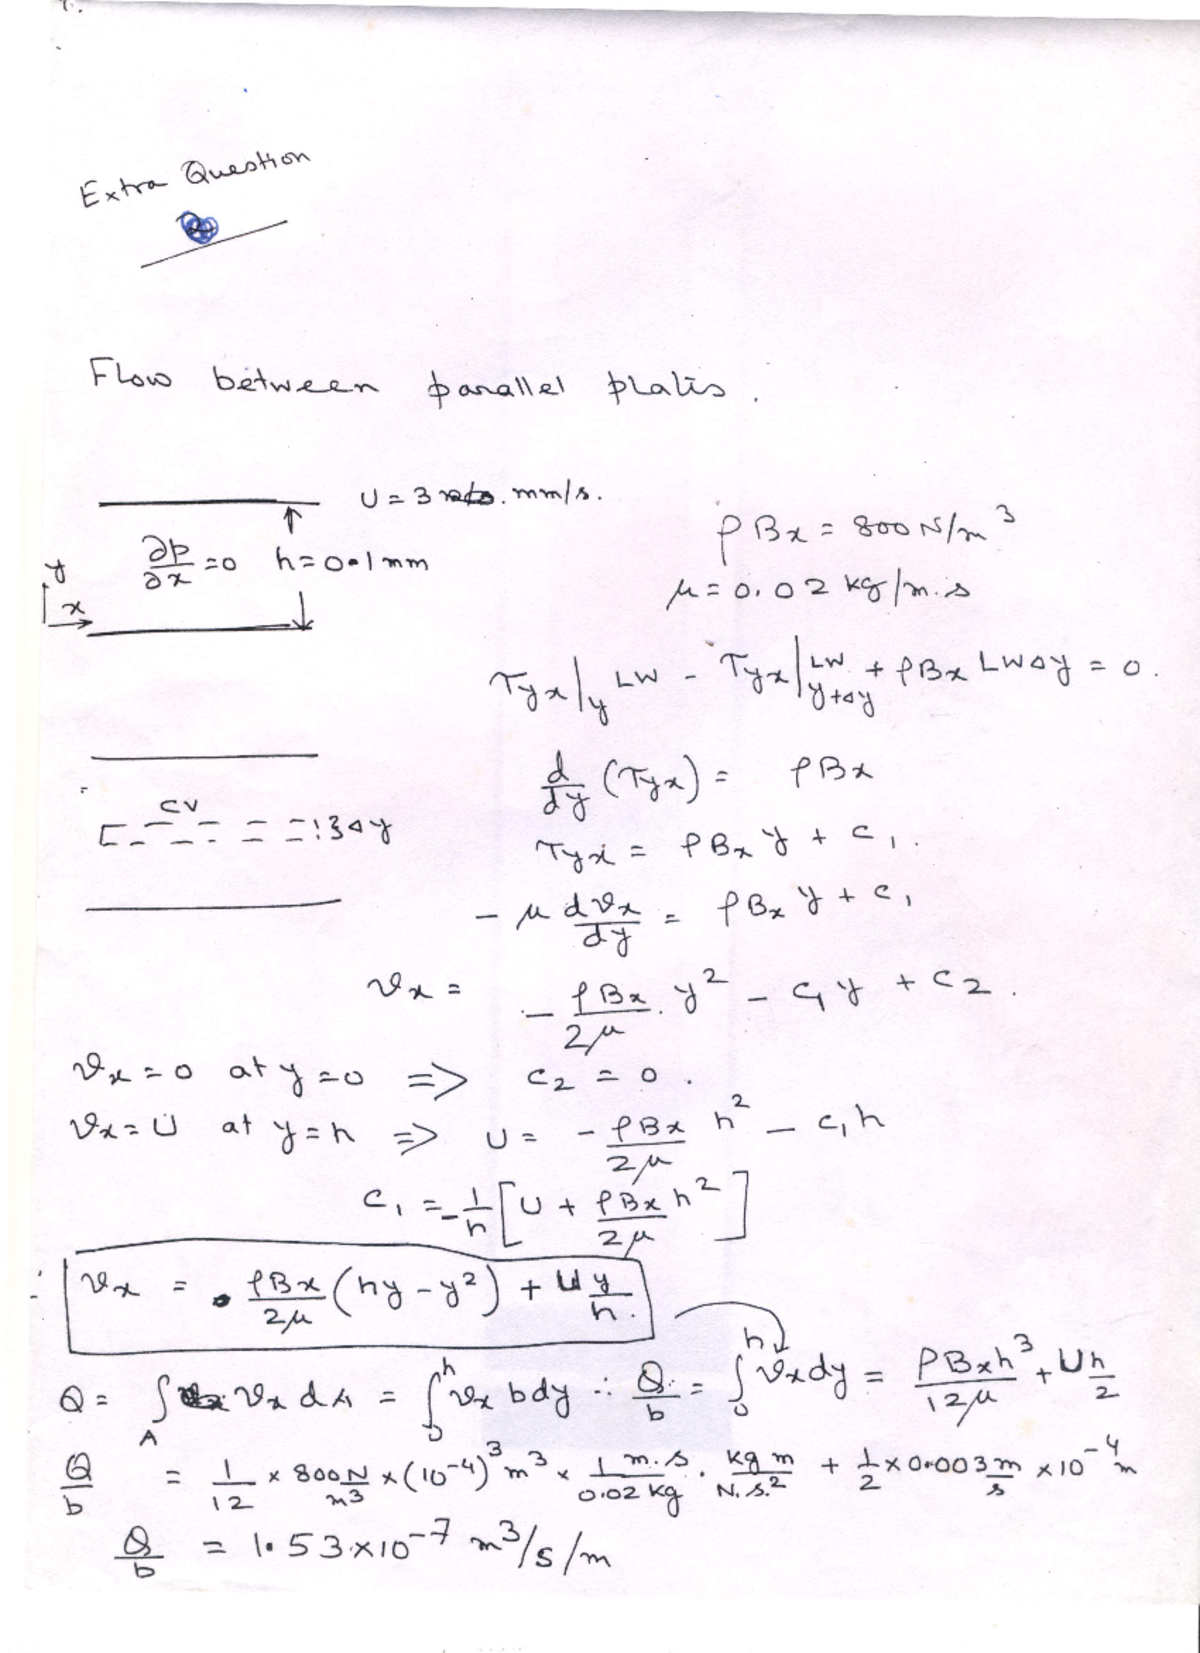 Extra Question
2
Flow between parallel plates.
U = 3 mm/s.
∂p/∂x = 0 h = 0.1 mm
y
x
ρBx = 800 N/m³
μ = 0.02 kg/m.s
τyx|y LW - τyx|y+Δy LW + ρBx LWΔy = 0.
CV
Δy
d/dy (τyx) = ρBx
τyx = ρBx y + c₁.
- μ dvx/dy = ρBx y + c₁
vx = - ρBx/2μ . y² - c₁y + c₂.
vx = 0 at y = 0 => c₂ = 0.
vx = U at y = h => U = - ρBx/2μ h² - c₁h
c₁ = - 1/h [U + ρBx h²/2μ]
vx = ρBx/2μ (hy - y²) + U y/h.
Q = ∫A vx dA = ∫₀ʰ vx bdy ∴ Q/b = ∫₀ʰ vx dy = ρBxh³/12μ + Uh/2
Q/b = 1/12 × 800 N/m³ × (10⁻⁴)³ m³ × 1/0.02 m.s/kg . kg m/N.s² + 1/2 × 0.003 m/s × 10⁻⁴ m
Q/b = 1.53×10⁻⁷ m³/s/m